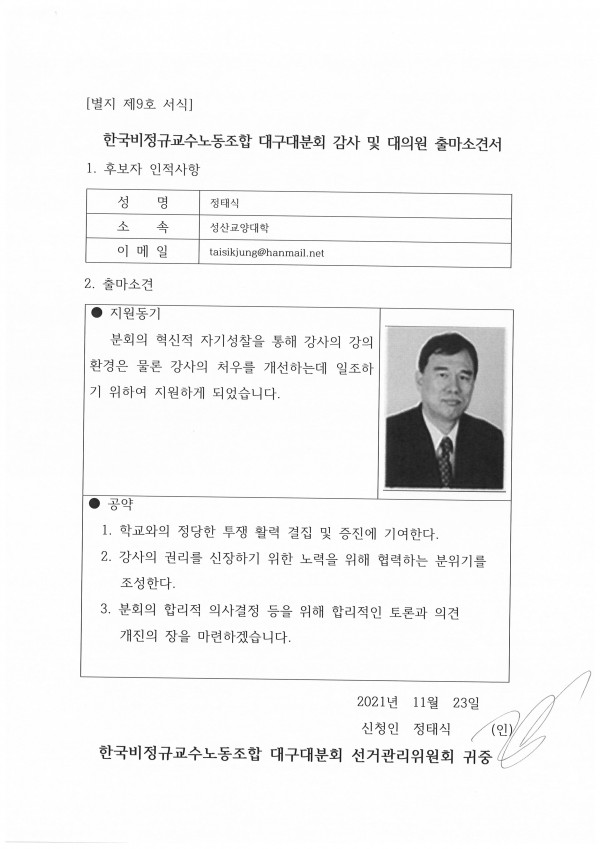 [별지 제9호 서식]
한국비정규교수노동조합 대구대분회 감사 및 대의원 출마소견서
1. 후보자 인적사항
성 명 정태식
소 속 성산교양대학
이 메 일 taisikjung@hanmail.net
2. 출마소견
● 지원동기
분회의 혁신적 자기성찰을 통해 강사의 강의
환경은 물론 강사의 처우를 개선하는데 일조하
기 위하여 지원하게 되었습니다.
● 공약
1. 학교와의 정당한 투쟁 활력 결집 및 증진에 기여한다.
2. 강사의 권리를 신장하기 위한 노력을 위해 협력하는 분위기를
조성한다.
3. 분회의 합리적 의사결정 등을 위해 합리적인 토론과 의견
개진의 장을 마련하겠습니다.
2021년 11월 23일
신청인 정태식 (인)
한국비정규교수노동조합 대구대분회 선거관리위원회 귀중